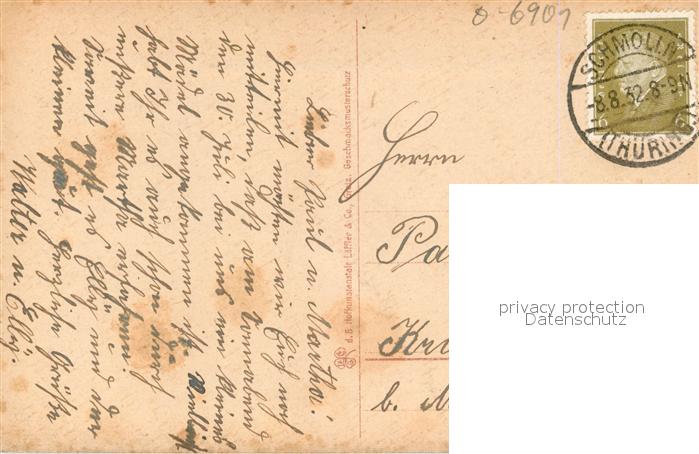 Lieber Paul u. Martha!
Hiermit möchten wir Euch noch
mitteilen, daß am Sonnabend
den 30. Juli bei uns ein kleines
Mädel angekommen ist. Vielleicht
habt Ihr es auch schon durch
unsere Martha erfahren.
Soweit geht es Elly und der
kleinen gut. Herzliche Grüße
Walter u. Elly.
d. B. Hofkunstanstalt Löffler & Co., Greiz. Geschmacksmusterschutz
0-6901
SCHMÖLLN
8.8.32.8-9V
(THÜRING
6 6
Herrn
Pa
Kr
b. M
privacy protection
Datenschutz